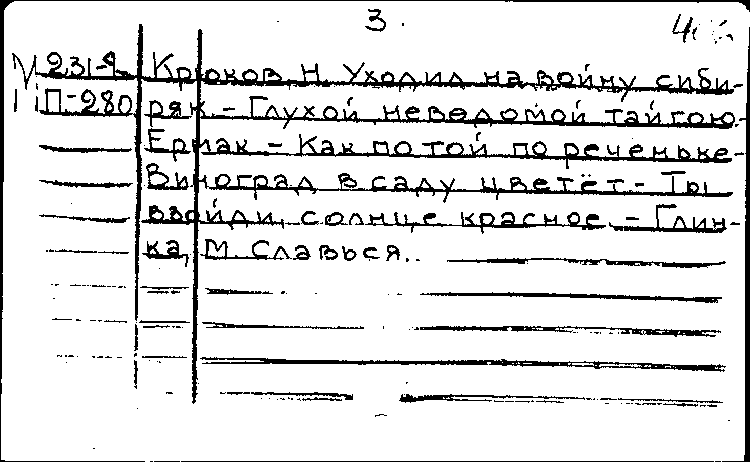 3.
М 231-2 Крюков, Н. Уходил на войну сиби-
П-280 ряк. - Глухой неведомой тайгою. -
Ермак. - Как по той по реченьке. -
Виноград в саду цветёт. - Ты
взойди, солнце красное. - Глин-
ка, М. Славься.